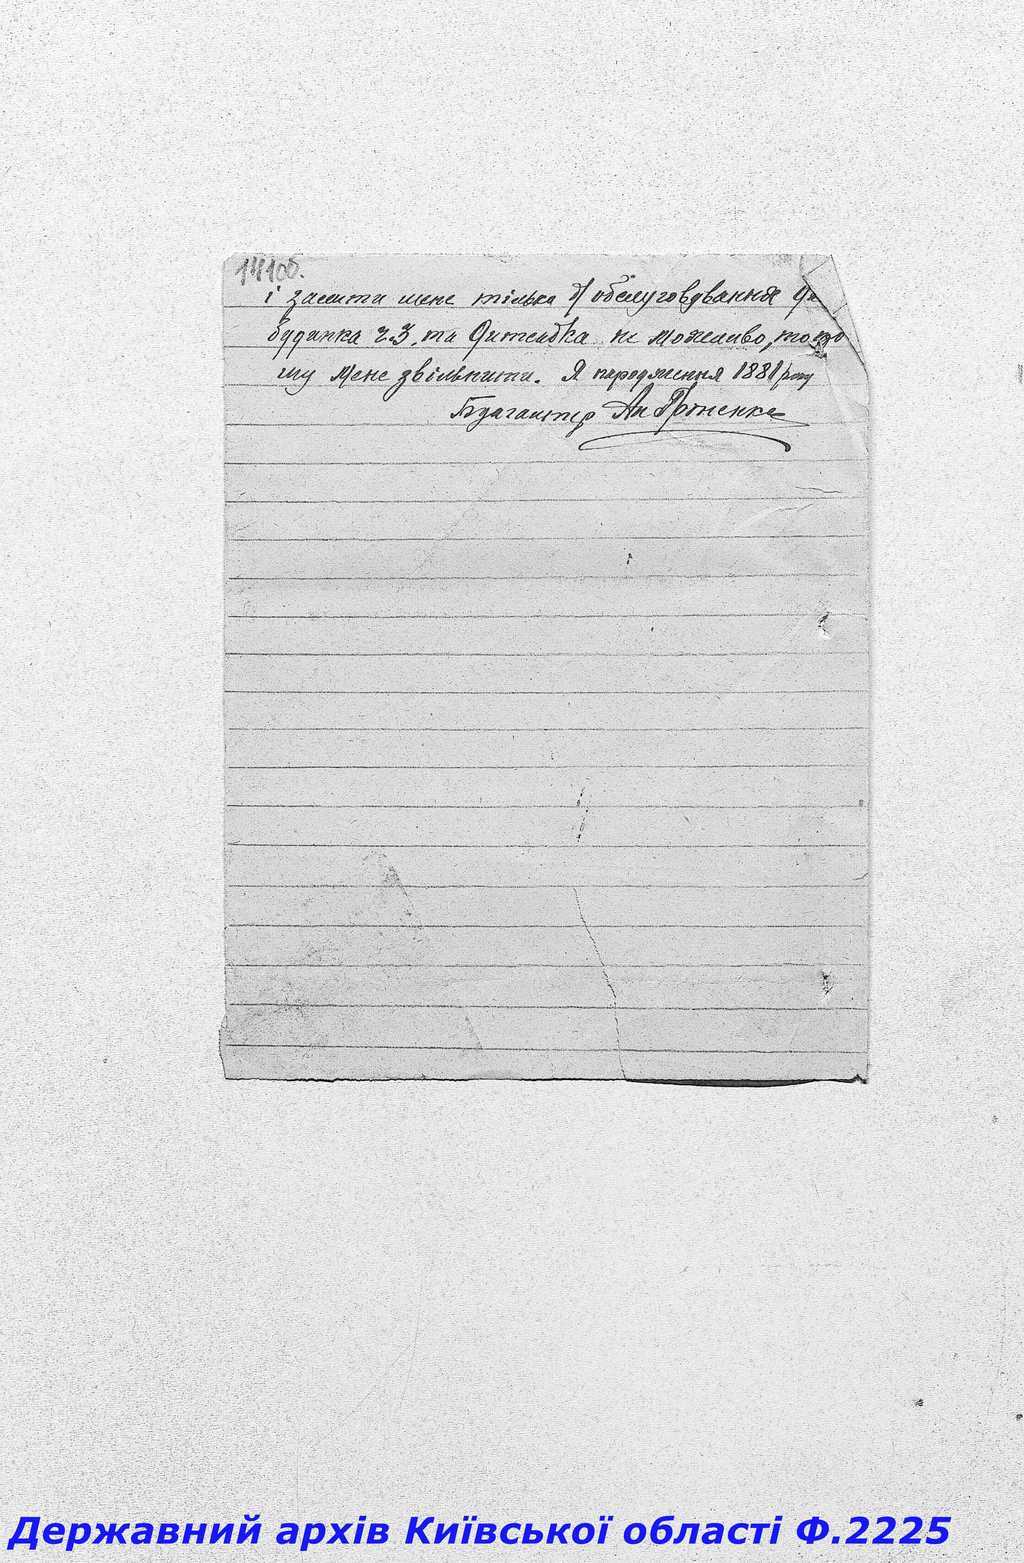 141об.
і залишити мене тілька д/ обслуговування
будинка ч.3. та Дитсадка не можливо, то про
шу мене звільнити. Я народження 1881 року
Бухгалтер Ан
Державний архів Київської області Ф.2225